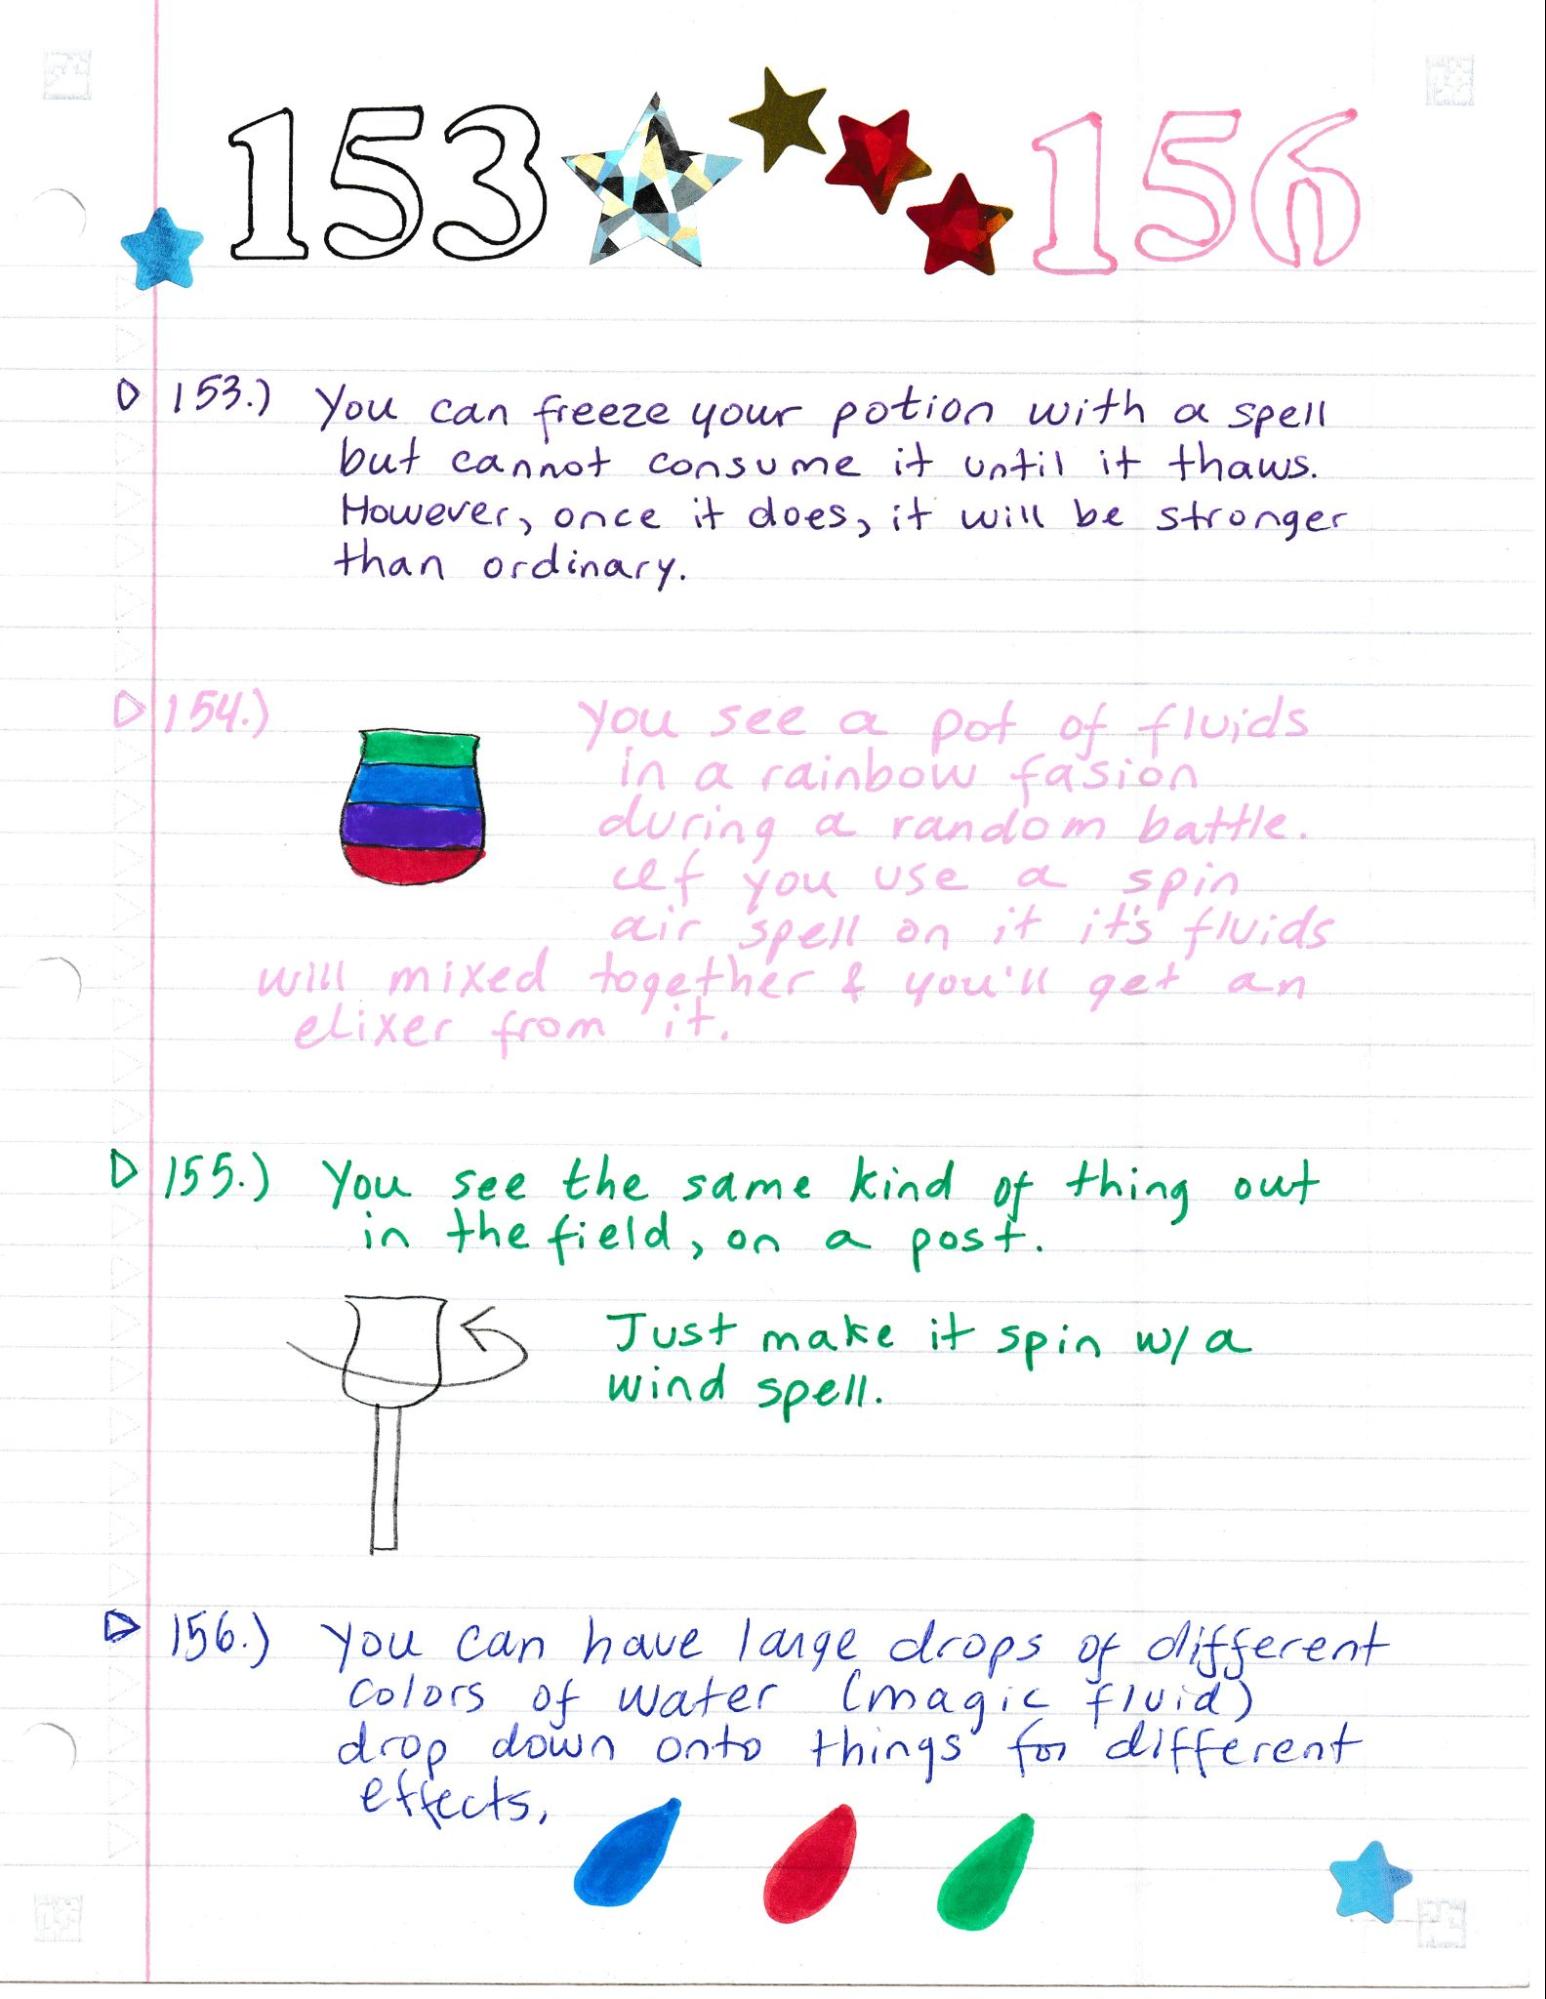 153 156
153.) You can freeze your potion with a spell
but cannot consume it until it thaws.
However, once it does, it will be stronger
than ordinary.
154.) You see a pot of fluids
in a rainbow fasion
during a random battle.
If you use a spin
air spell on it it's fluids
will mixed together & you'll get an
elixer from it.
155.) You see the same kind of thing out
in the field, on a post.
Just make it spin w/a
wind spell.
156.) You can have large drops of different
colors of water (magic fluid)
drop down onto things for different
effects.